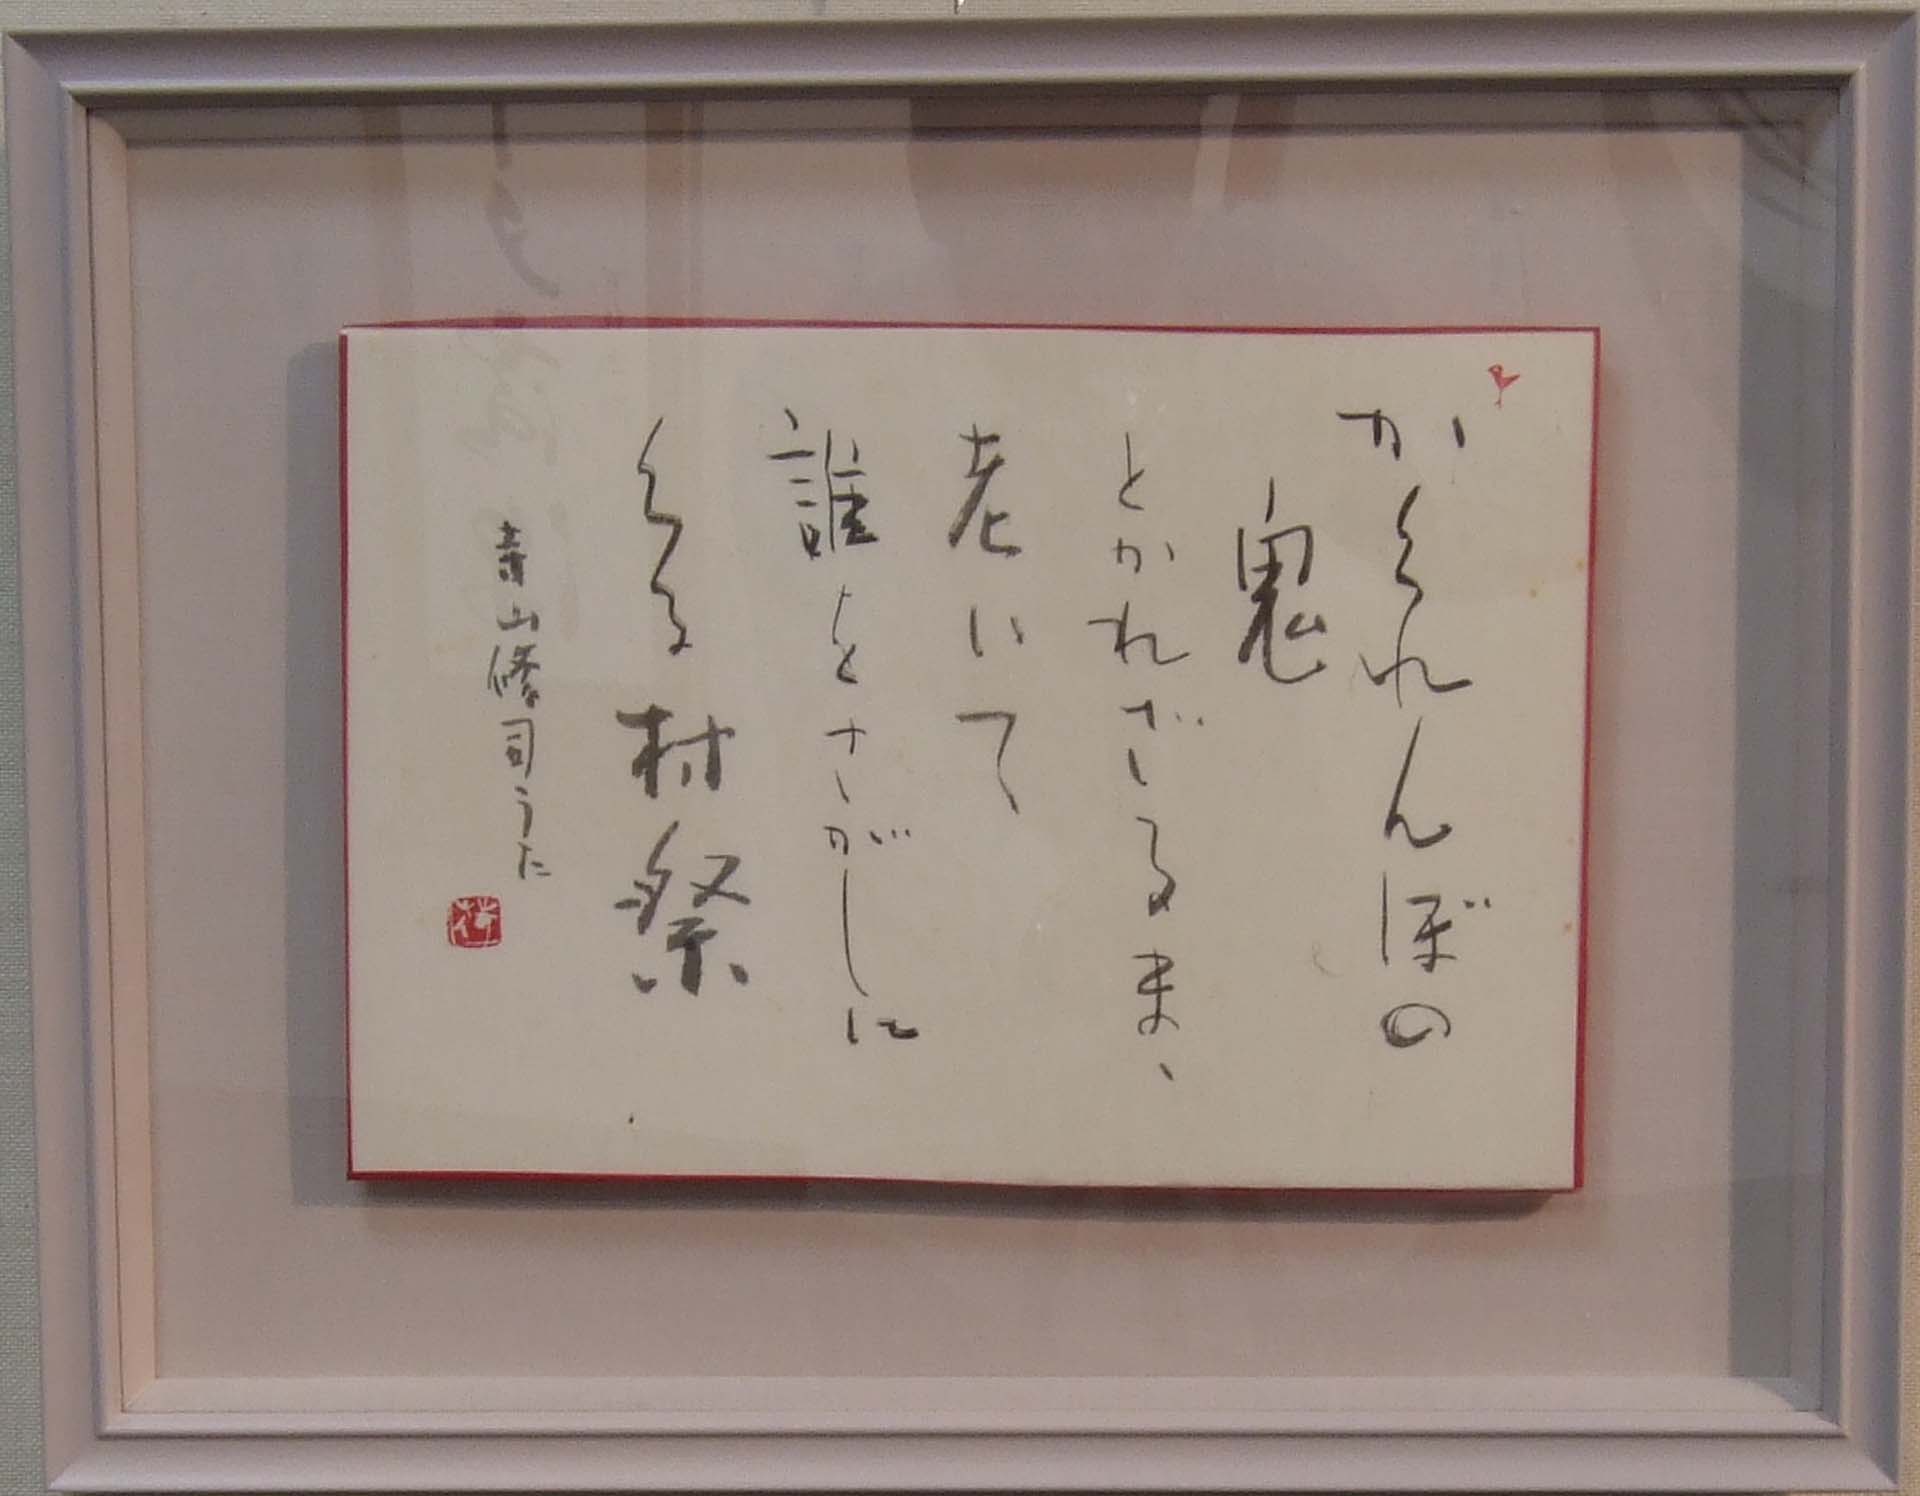 かくれんぼの
鬼
とかれざるまゝ
老いて
誰をさがしに
くる村祭
寺山修司うた